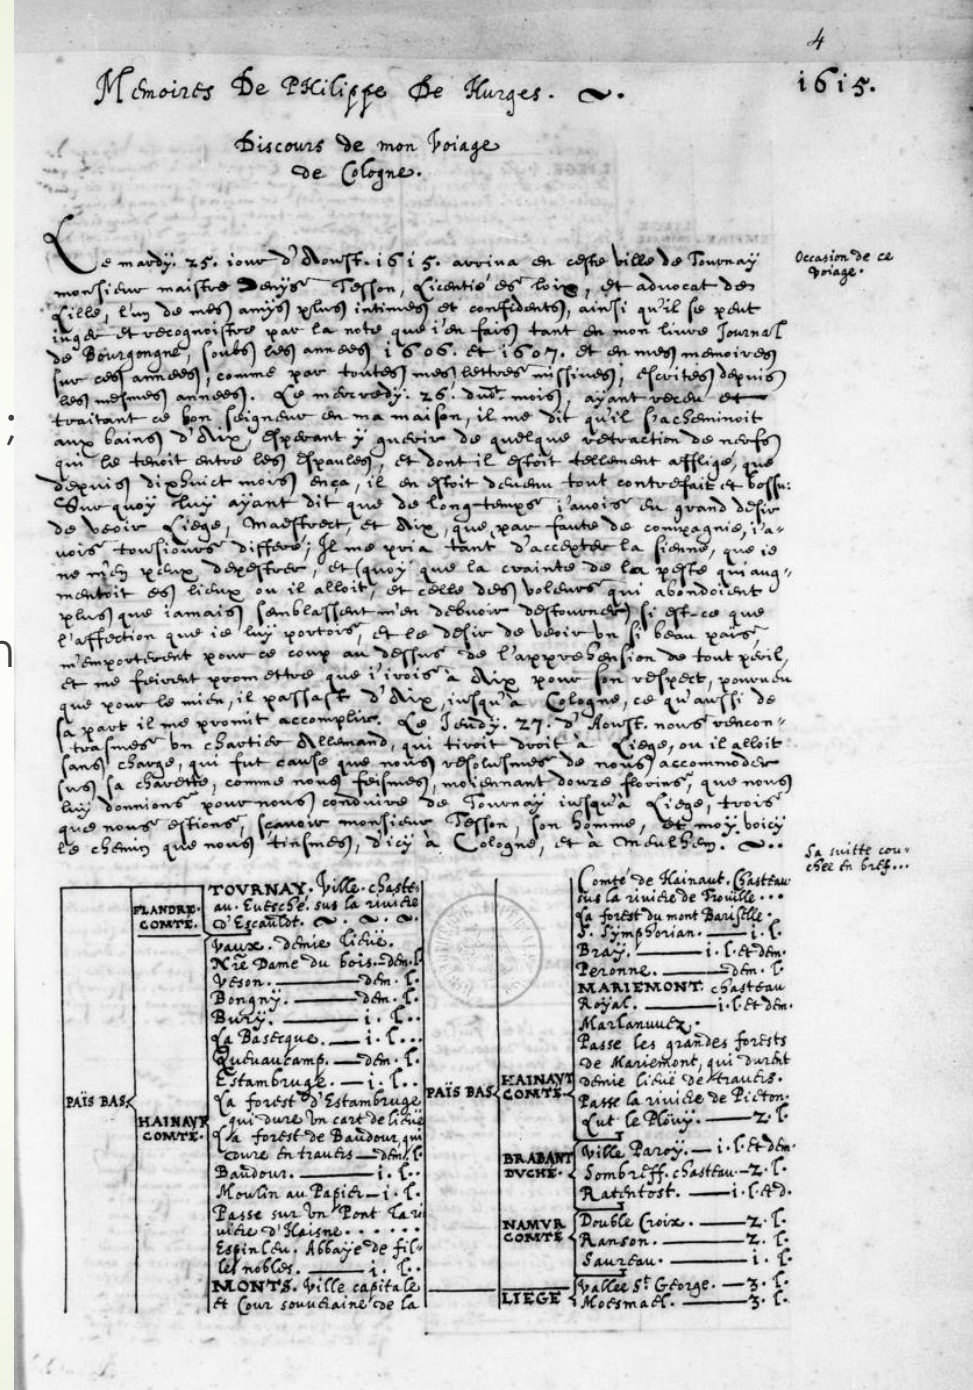 4
Memoires De PHilippe De Hurges. ~.
1615.
Discours de mon Voiage
de Cologne.
Le mardy. 25. iour d'Aoust. 1615. arriva en ceste ville de Tournay
Occasion de ce
voiage.
monsieur maistre Denys Tesson, Licentié és loix, et advocat des
Lille, l'un de mes amys plus intimes et confidents, ainsi qu'il se peut
iuger et recognoistre par la note que i'en fais tant en mon livre Journal
de Bourgongne, soubs les annees 1606. et 1607. et en mes memoires
sur ces annees, comme par toutes mes lettres missives, escrites depuis
les mesmes annees. Le mercredy. 26. dud. mois, ayant receu et
traitant ce bon seigneur en ma maison, il me dit qu'il s'acheminoit
aux bains d'Aix, esperant y guerir de quelque retraction de nerfs
qui le tenoit entre les espaules, et dont il estoit tellement affligé, que
depuis dixhuict mois ença, il en estoit devenu tout contrefait et bossu:
Sur quoy luy ayant dit que de long temps i'avois eu grand desir
de veoir Liege, Maestrect, et Aix, que par faute de compagnie, i'a-
vois tousiours differé; Il me pria tant d'accepter la sienne, que ie
ne m'en peux depestrer, et (quoy que la crainte de la peste qui aug-
mentoit es lieux ou il alloit, et celle des voleurs qui abondoient
plus que iamais semblassent m'en debvoir destourner) si est-ce que
l'affection que ie luy portois, et le desir de veoir un si beau païs,
m'emporterent pour ce coup au dessus de l'apprehension de tout peril,
et me feirent promettre que i'irois à Aix pour son respect, pourveu
que pour le mien, il passast d'Aix, iusqu'à Cologne, ce qu'aussi de
sa part il me promit accomplir. Le Jeudy. 27. d'Aoust. nous rencon-
trasmes un chartier Allemand, qui tiroit droit à Liege, ou il alloit
sans charge, qui fut cause que nous resolusmes de nous accommoder
sus sa charette, comme nous feismes, moiennant douze florins, que nous
luy donnions pour nous conduire de Tournay iusqu'à Liege, trois
que nous estions, sçavoir monsieur Tesson, son homme, et moy. voicy
le chemin que nous tinsmes, d'icy à Cologne, et à Meulhem. ~..
Sa suitte cou-
chee en bref...
PAÏS BAS
FLANDRE.
COMTÉ.
TOURNAY. Ville. chaste-
au. Evesché. sus la riviere
d'Escauldt. ~. ~. ~.
HAINAUT
COMTE.
Vaux. demie lieuë.
Nre Dame du bois. dem. l.
Veson. dem. l.
Bongny. dem. l.
Bury. i. l..
La Basecque. i. l...
Quevaucamp. dem. l.
Estambruge. i. l..
La forest d'Estambruge
qui dure un cart de lieuë
La forest de Baudour, qui
dure en travers dem. l.
Baudour. i. l..
Moulin au Papier i. l.
Passe sur un Pont la ri
viere d'Haisne.....
Espinleu. Abbaye de fil-
les nobles. i. l..
MONTS. Ville capitale
et Cour souveraine de la
PAÏS BAS
HAINAUT
COMTE.
Comté de Hainaut. Chasteau
sus la riviere de Trouille...
La forest du mont Bariselle.
S. Symphorian. i. l.
Bray. i. l. et dem.
Peronne. dem. l.
MARIEMONT. chasteau
Royal. i. l. et dem.
Marlanuvez.
Passe les grandes forests
de Mariemont, qui durent
demie lieuë de travers.
Passe la riviere de Picton.
Lut le Plouy. 2. l.
BRABANT
DUCHE.
Ville Paroy. i. l. et dem.
Sombreff. chasteau 2. l.
Ratentost. i. l. et d.
NAMUR
COMTE
Double Croix. 2. l.
Ranson. 2. l.
Saureau. i. l.
LIEGE
Vallee St George. 3. l.
Moesmael. 3. l.
;
n